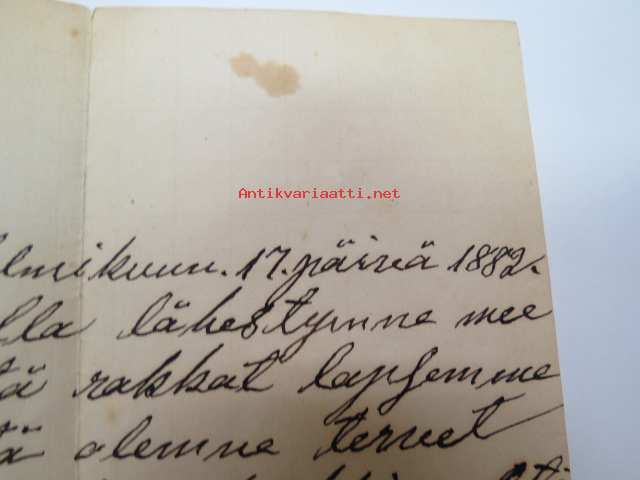 Antikvariaatti.net
lmikuun. 17. päivä 1882.
lla lähestymme mee
tä rakkat lapsemme
tä olemme tervet